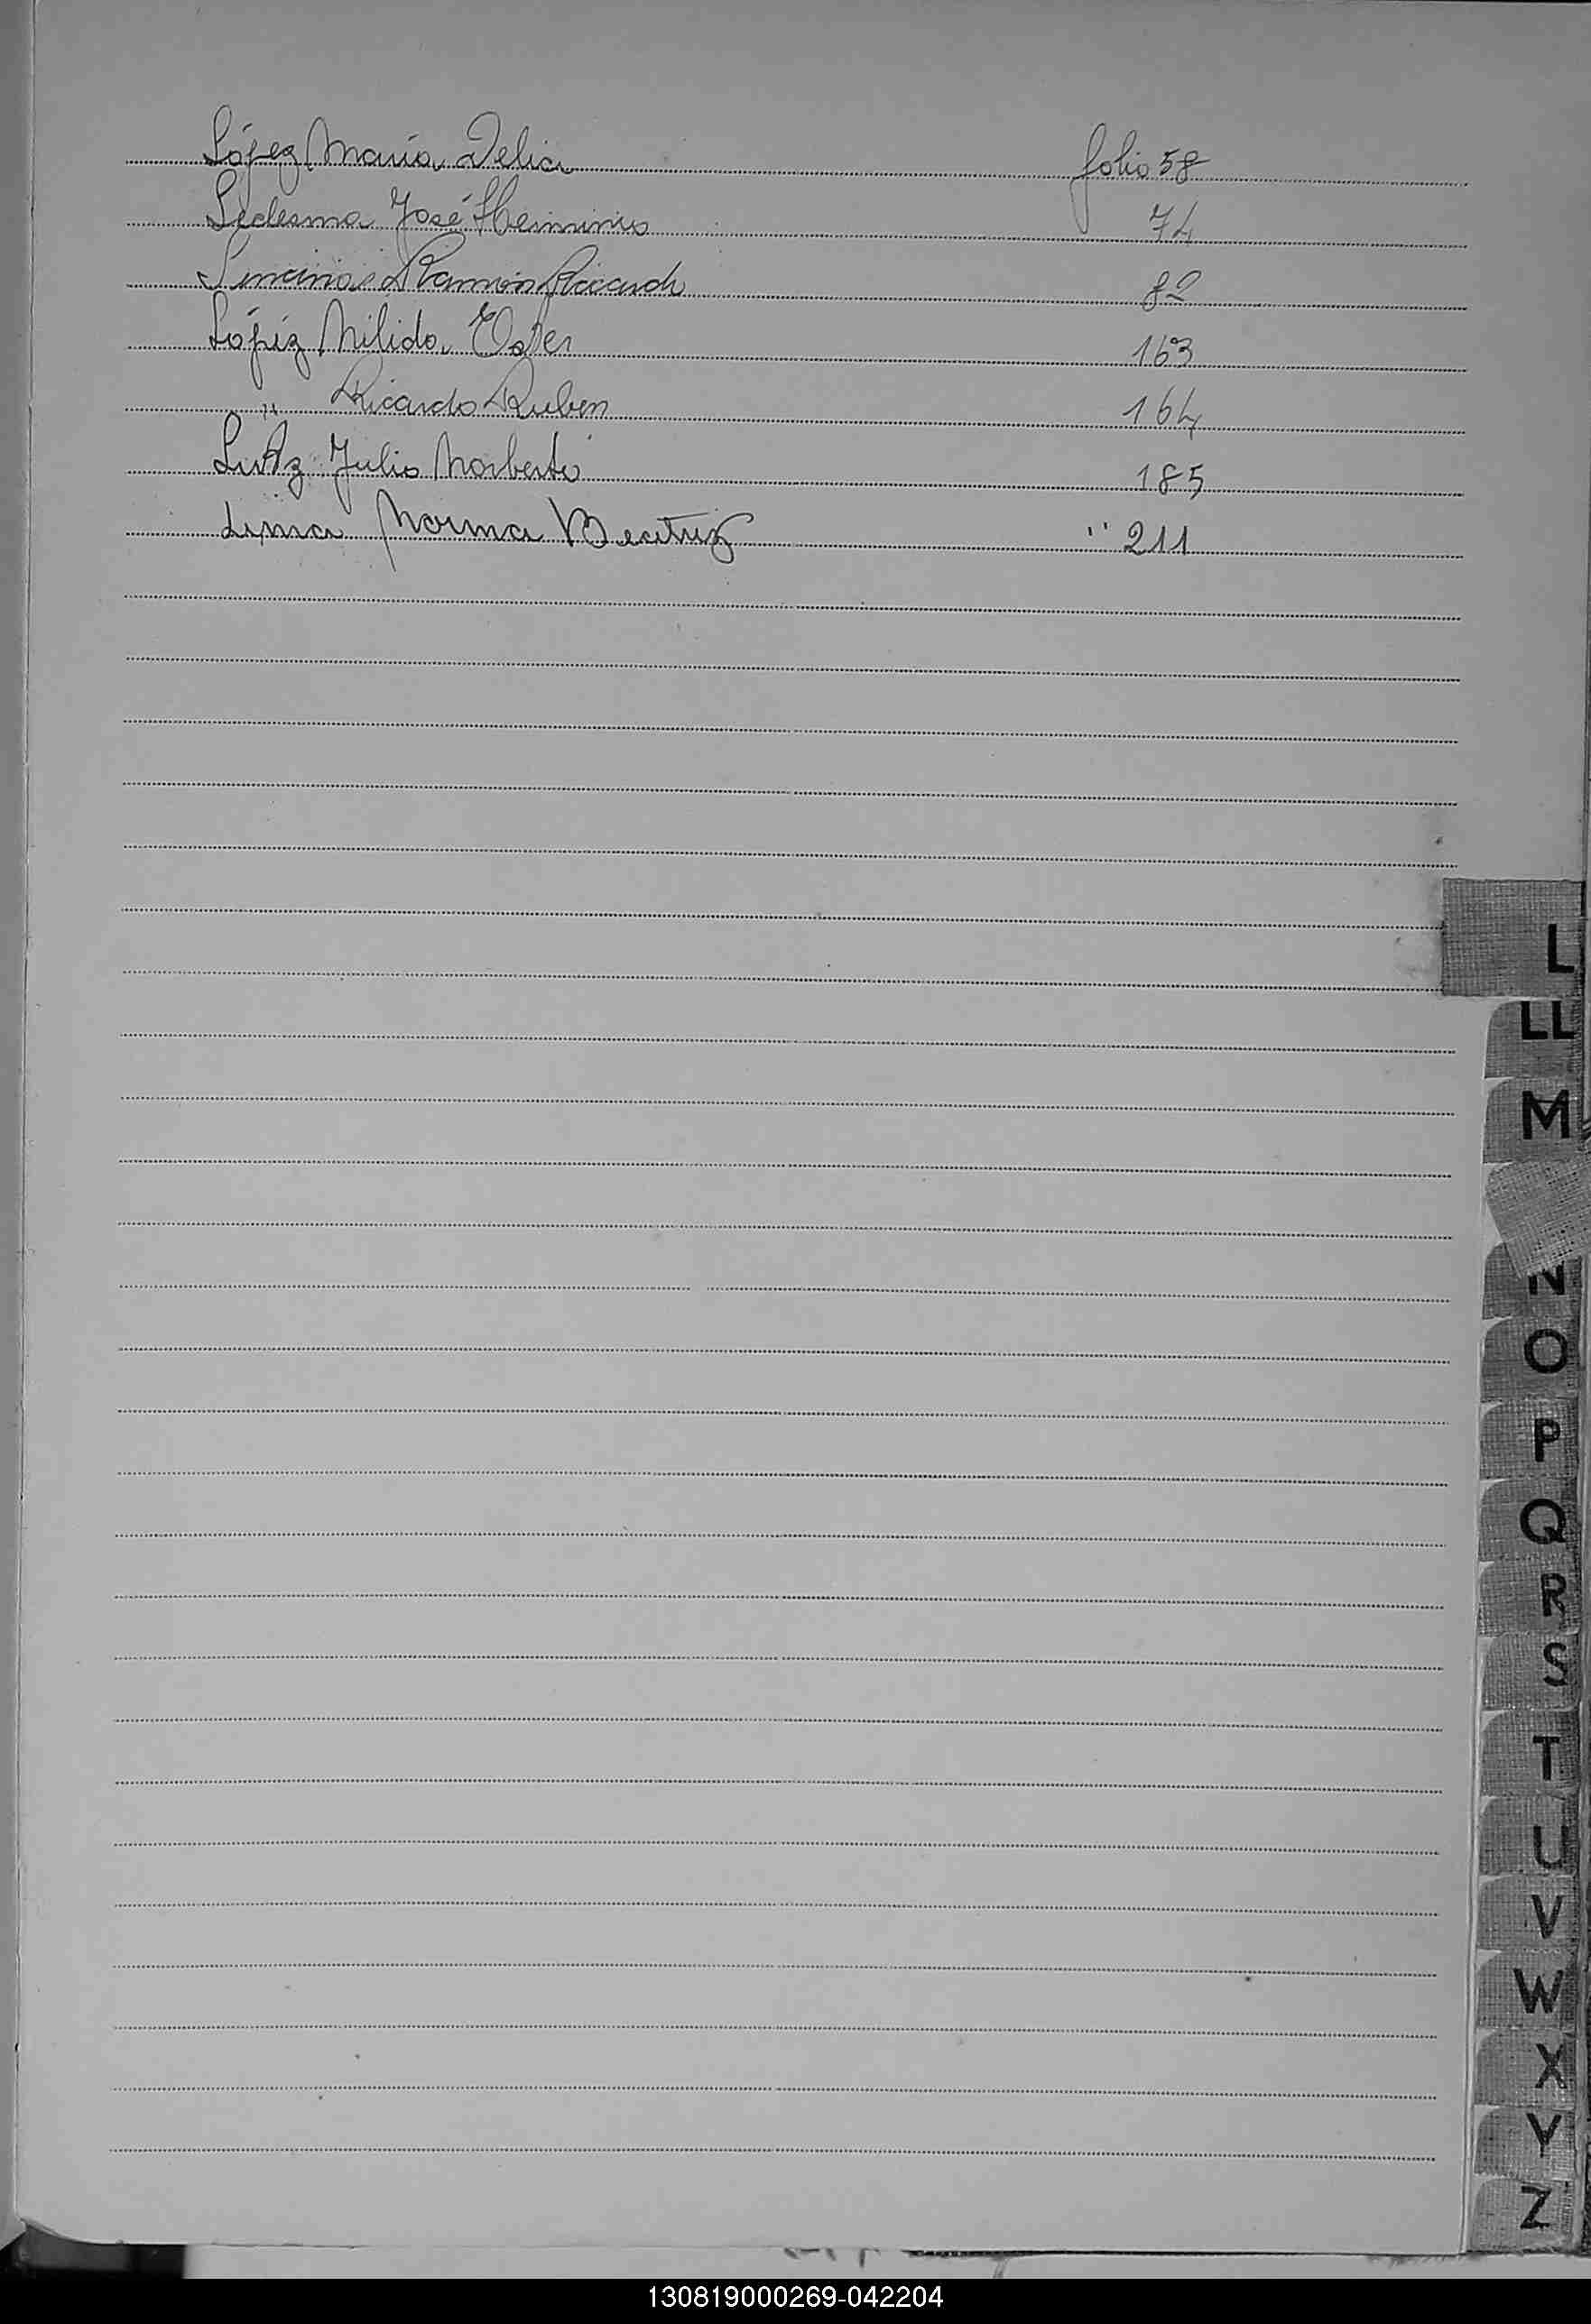 López María Delia folio 58
Ledesma José Herminio 74
Ramón Ricardo 82
López Nilida Ester 163
" Ricardo Ruben 164
Lutz Julio Norberto 185
Lima Norma Beatriz " 211
L
LL
M
N
O
P
Q
R
S
T
U
V
W
X
Y
Z
130819000269-042204